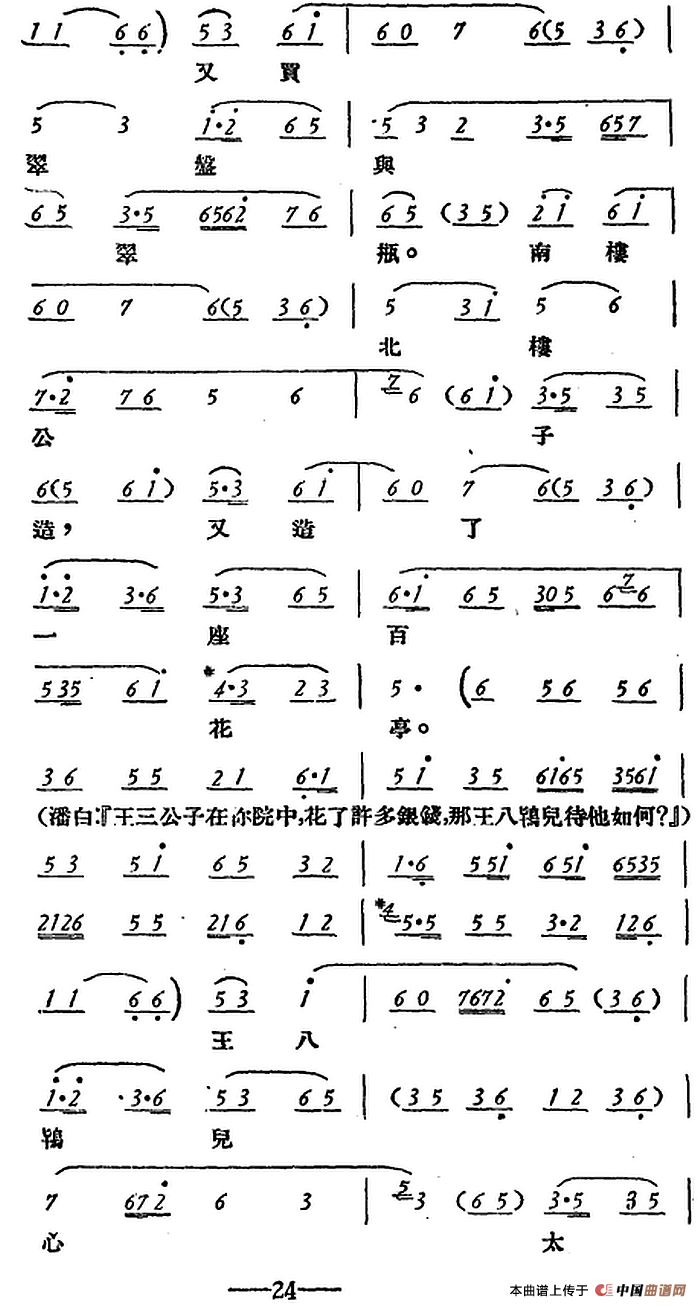 1 1 6 6) 5 3 6 1 | 6 0 7 6(5 3 6) |
又 買
5 3 1·2 6 5 | 5 3 2 3·5 657 |
翠 盤 與
6 5 3·5 6562 7 6 | 6 5 (3 5) 2 1 6 1 |
翠 瓶。 南 樓
6 0 7 6(5 3 6) | 5 3 1 5 6 |
北 樓
7·2 7 6 5 6 | 7 6 (6 1) 3·5 3 5 |
公 子
6(5 6 1) 5·3 6 1 | 6 0 7 6(5 3 6) |
造, 又 造 了
1·2 3·6 5·3 6 5 | 6·1 6 5 305 6 7 6 |
一 座 百
535 6 1 #4·3 2 3 | 5· (6 5 6 5 6 |
花 亭。
3 6 5 5 2 1 6·1 | 5 1 3 5 6165 3561 |
(潘白:『王三公子在你院中,花了許多銀錢,那王八鴇兒待他如何?』)
5 3 5 1 6 5 3 2 | 1·6 551 651 6535 |
2126 5 5 216 1 2 | #4 5·5 5 5 3·2 126 |
1 1 6 6) 5 3 1 | 6 0 7672 6 5 (3 6) |
王 八
1·2 3·6 5 3 6 5 | (3 5 3 6 1 2 3 6) |
鴇 兒
7 672 6 3 | 5 3 (6 5) 3·5 3 5 |
心 太
—24—
本曲谱上传于 中国曲谱网